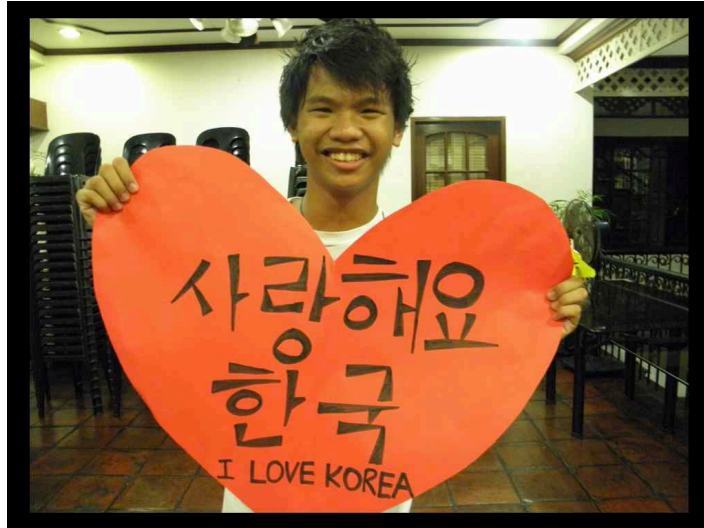 사랑해요
한국
I LOVE KOREA